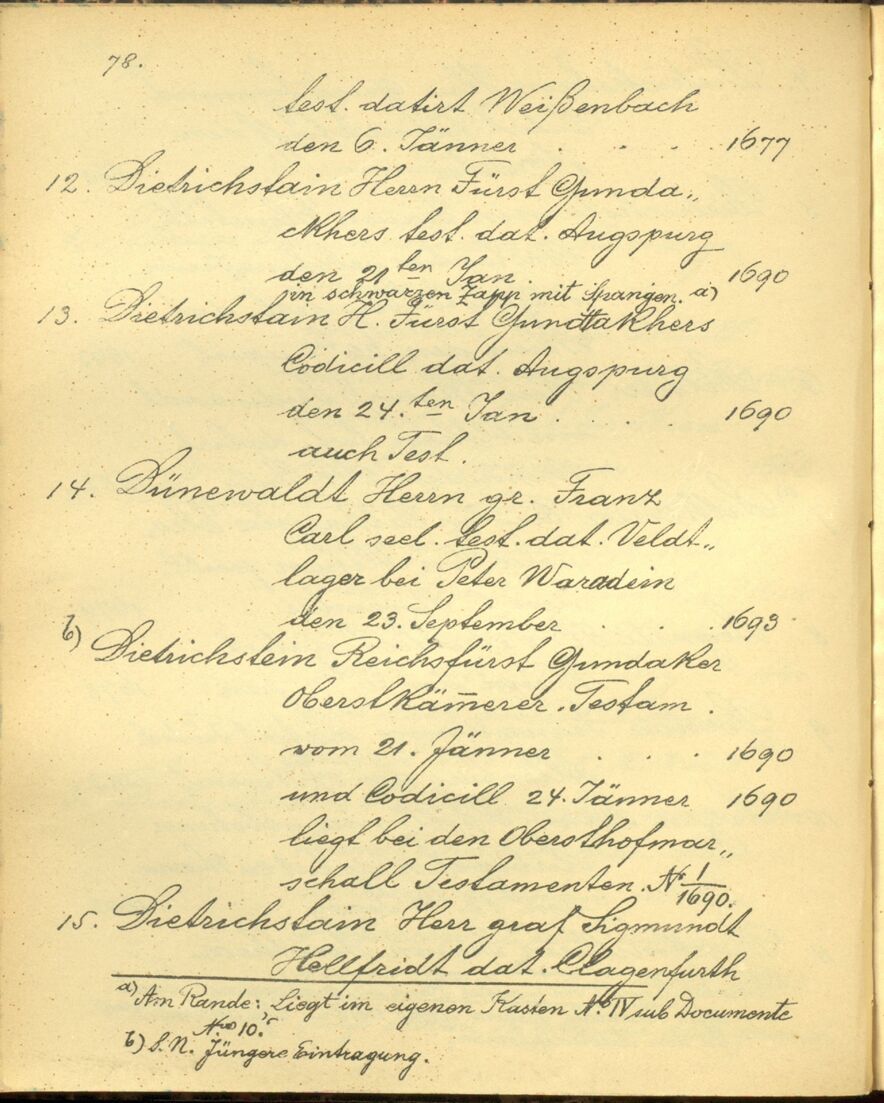 78.
test. datirt Weißenbach
den 6. Jänner . . . 1677
12. Dietrichstain Herrn Fürst Gunda„
ckhers test. dat. Augspurg
den 21ten Jan. 1690
in schwarzen Zapp mit Spangen. a)
13. Dietrichstain H. Fürst Gundtakhers
Codicill dat. Augspurg
den 24.ten Jan . . . . 1690
auch Test.
14. Dünewaldt Herrn gr. Franz
Carl seel. test. dat. Veldt„
lager bei Peter Waradein
den 23. September . . . 1693
b) Dietrichstein Reichsfürst Gundaker
Oberstkäm̅erer. Testam.
vom 21. Jänner . . . 1690
und Codicill 24. Jänner 1690
liegt bei den Obersthofmar„
schall Testamenten. N° 1/1690.
15. Dietrichstain Herr graf Sigmundt
Hellfridt dat. Clagenfurth
a) Am Rande: Liegt im eigenen Kasten N° IV sub Documente
Nro 10.
b) S.N. Jüngere Eintragung.